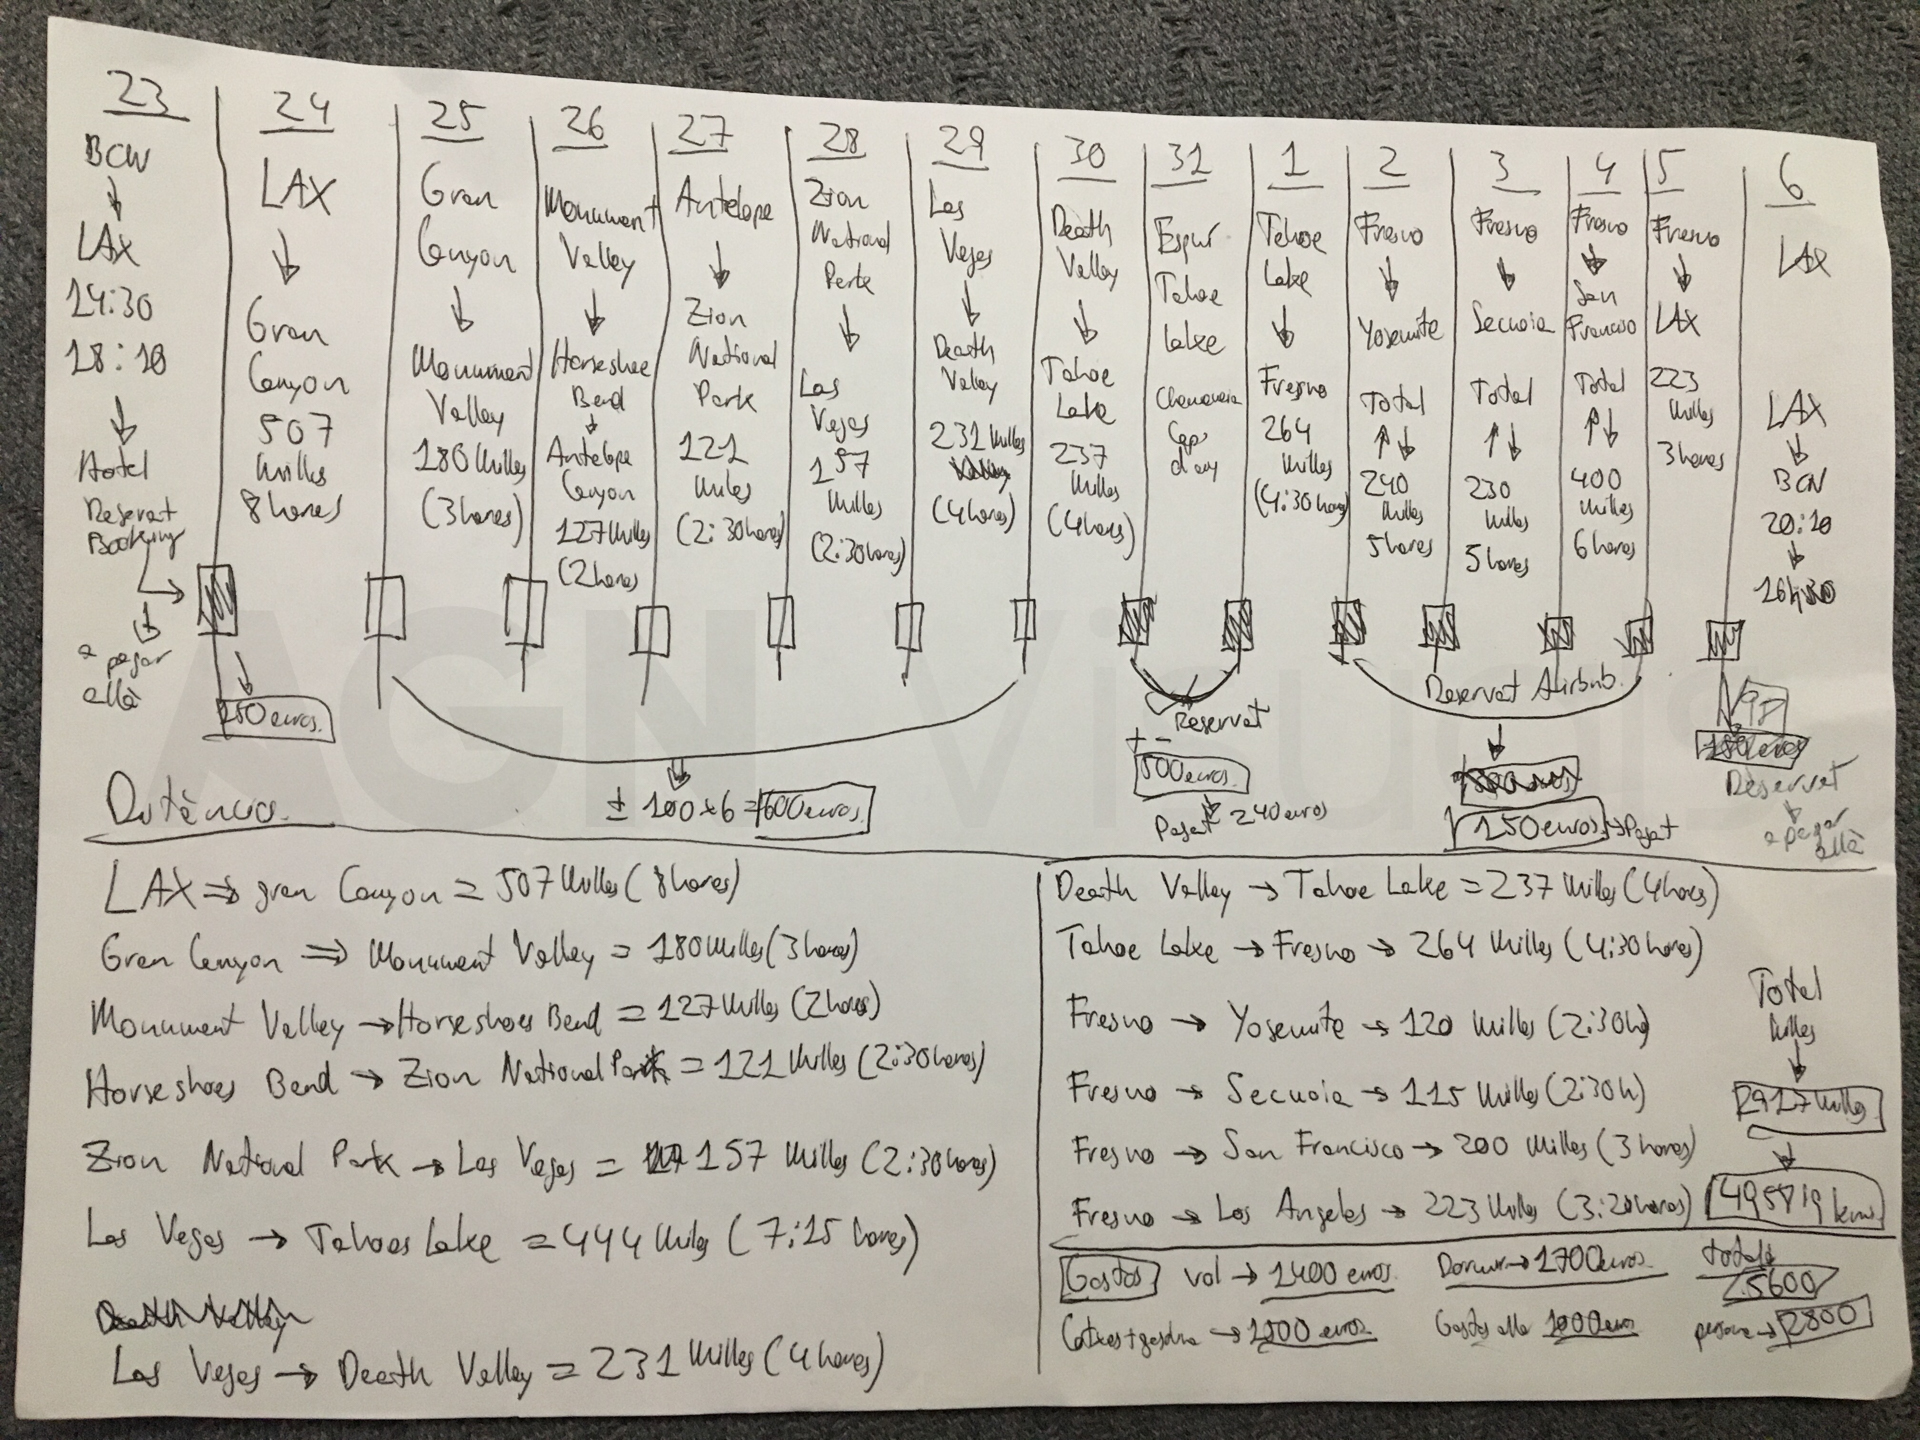 23
BCN
↓
LAX
14:30
18:10
↓
Hotel
Reservat
Booking
a
pagar
allà
150 euros.
24
LAX
↓
Gran
Canyon
507
Milles
8 hores
25
Gran
Canyon
↓
Monument
Valley
180 Milles
(3 hores)
26
Monument
Valley
↓
Horseshoe
Bend
↓
Antelope
Canyon
127 Milles
(2 hores
27
Antelope
↓
Zion
National
Park
121
Miles
(2:30 hores)
28
Zion
National
Park
↓
Las
Vegas
157
Milles
(2:30 hores)
29
Las
Vegas
↓
Death
Valley
231 Milles
(4 hores)
30
Death
Valley
↓
Tahoe
Lake
237
Milles
(4 hores)
31
Esqui
Tahoe
Lake
Cap
d'any
1
Tahoe
Lake
↓
Fresno
264
Milles
(4:30 hores)
2
Fresno
↓
Yosemite
Total
↑↓
240
Milles
5 hores
3
Fresno
↓
Secuoia
Total
↑↓
230
Milles
5 hores
4
Fresno
↓
San
Francisco
Total
↑↓
400
Milles
6 hores
5
Fresno
↓
LAX
223
Milles
3 hores
6
LAX
LAX
↓
BCN
20:10
↓
± 100x6 = 600 euros.
Reservat
+-
500 euros.
Pagat 240 euros
Reservat Airbnb.
150 euros → Pagat
Reservat
a pagar
allà
Distància.
LAX ⇒ gran Canyon = 507 Milles (8 hores)
Gran Canyon ⇒ Monument Valley = 180 Milles (3 hores)
Monument Valley → Horseshoes Bend = 127 Milles (2 hores)
Horseshoes Bend → Zion National Park = 121 Milles (2:30 hores)
Zion National Park → Las Vegas = 157 Milles (2:30 hores)
Las Vegas → Tahoes Lake = 444 Miles (7:15 hores)
Death Valley
Las Veges → Death Valley = 231 Milles (4 hores)
Death Valley → Tahoe Lake = 237 Milles (4 hores)
Tahoe Lake → Fresno → 264 Milles (4:30 hores)
Fresno → Yosemite → 120 Milles (2:30h)
Fresno → Secuoia → 115 Milles (2:30h)
Fresno → San Francisco → 200 Milles (3 hores)
Fresno → Los Angeles → 223 Milles (3:20 hores)
Total
Milles
↓
2917 Milles
↓
kms.
Gastos vol → 1400 euros. Dormir → 1700 euros.
Cotxes + gasolina → euros. Gastos alla 1000 euros
total:
5600
persona → 2800
AGN Visuals